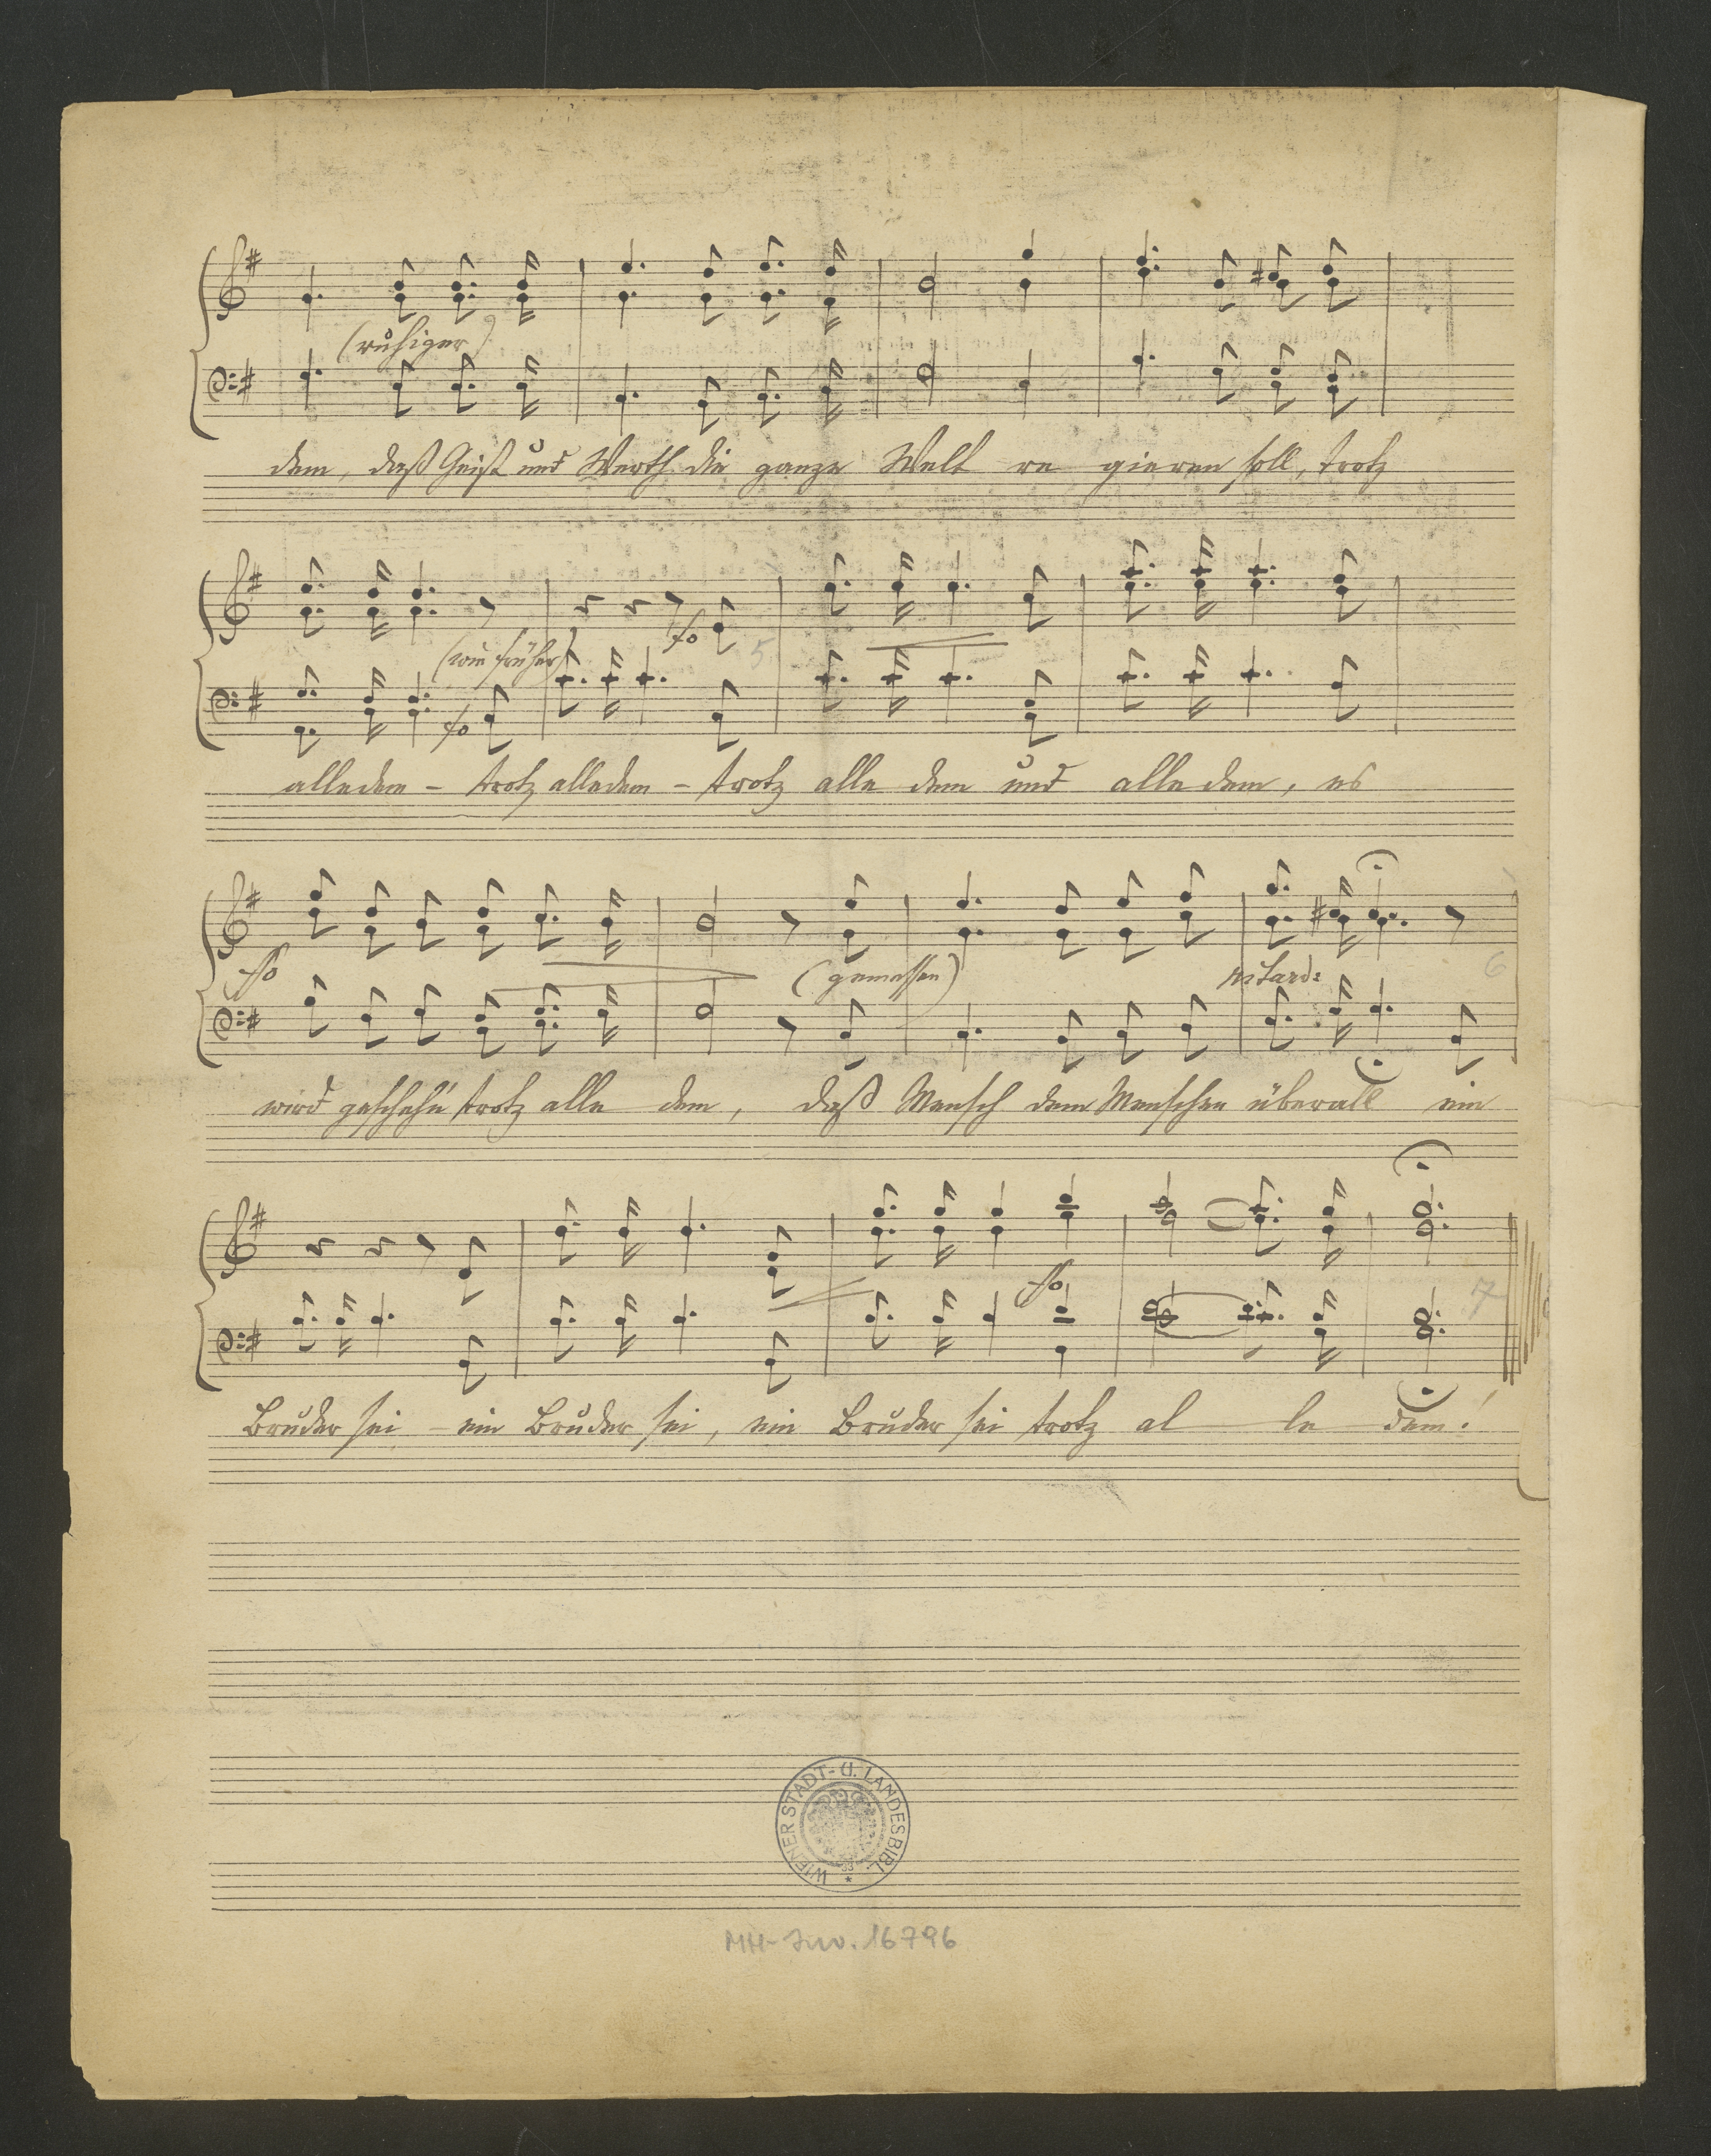 (ruhiger)
dem, daß Geist und Werth die ganze Welt re gieren soll, trotz
fo
(wie früher)
5
fo
alledem – trotz alledem – trotz alle dem und alle dem, es
ffo
(gemessen)
ritard:
6
wird gescheh'n trotz alle dem, daß Mensch dem Menschen überall ein
ffo
7
Bruder sei – ein Bruder sei, ein Bruder sei trotz al le dem!
WIENER STADT- U. LANDESBIBL.
MH-Inv. 16796